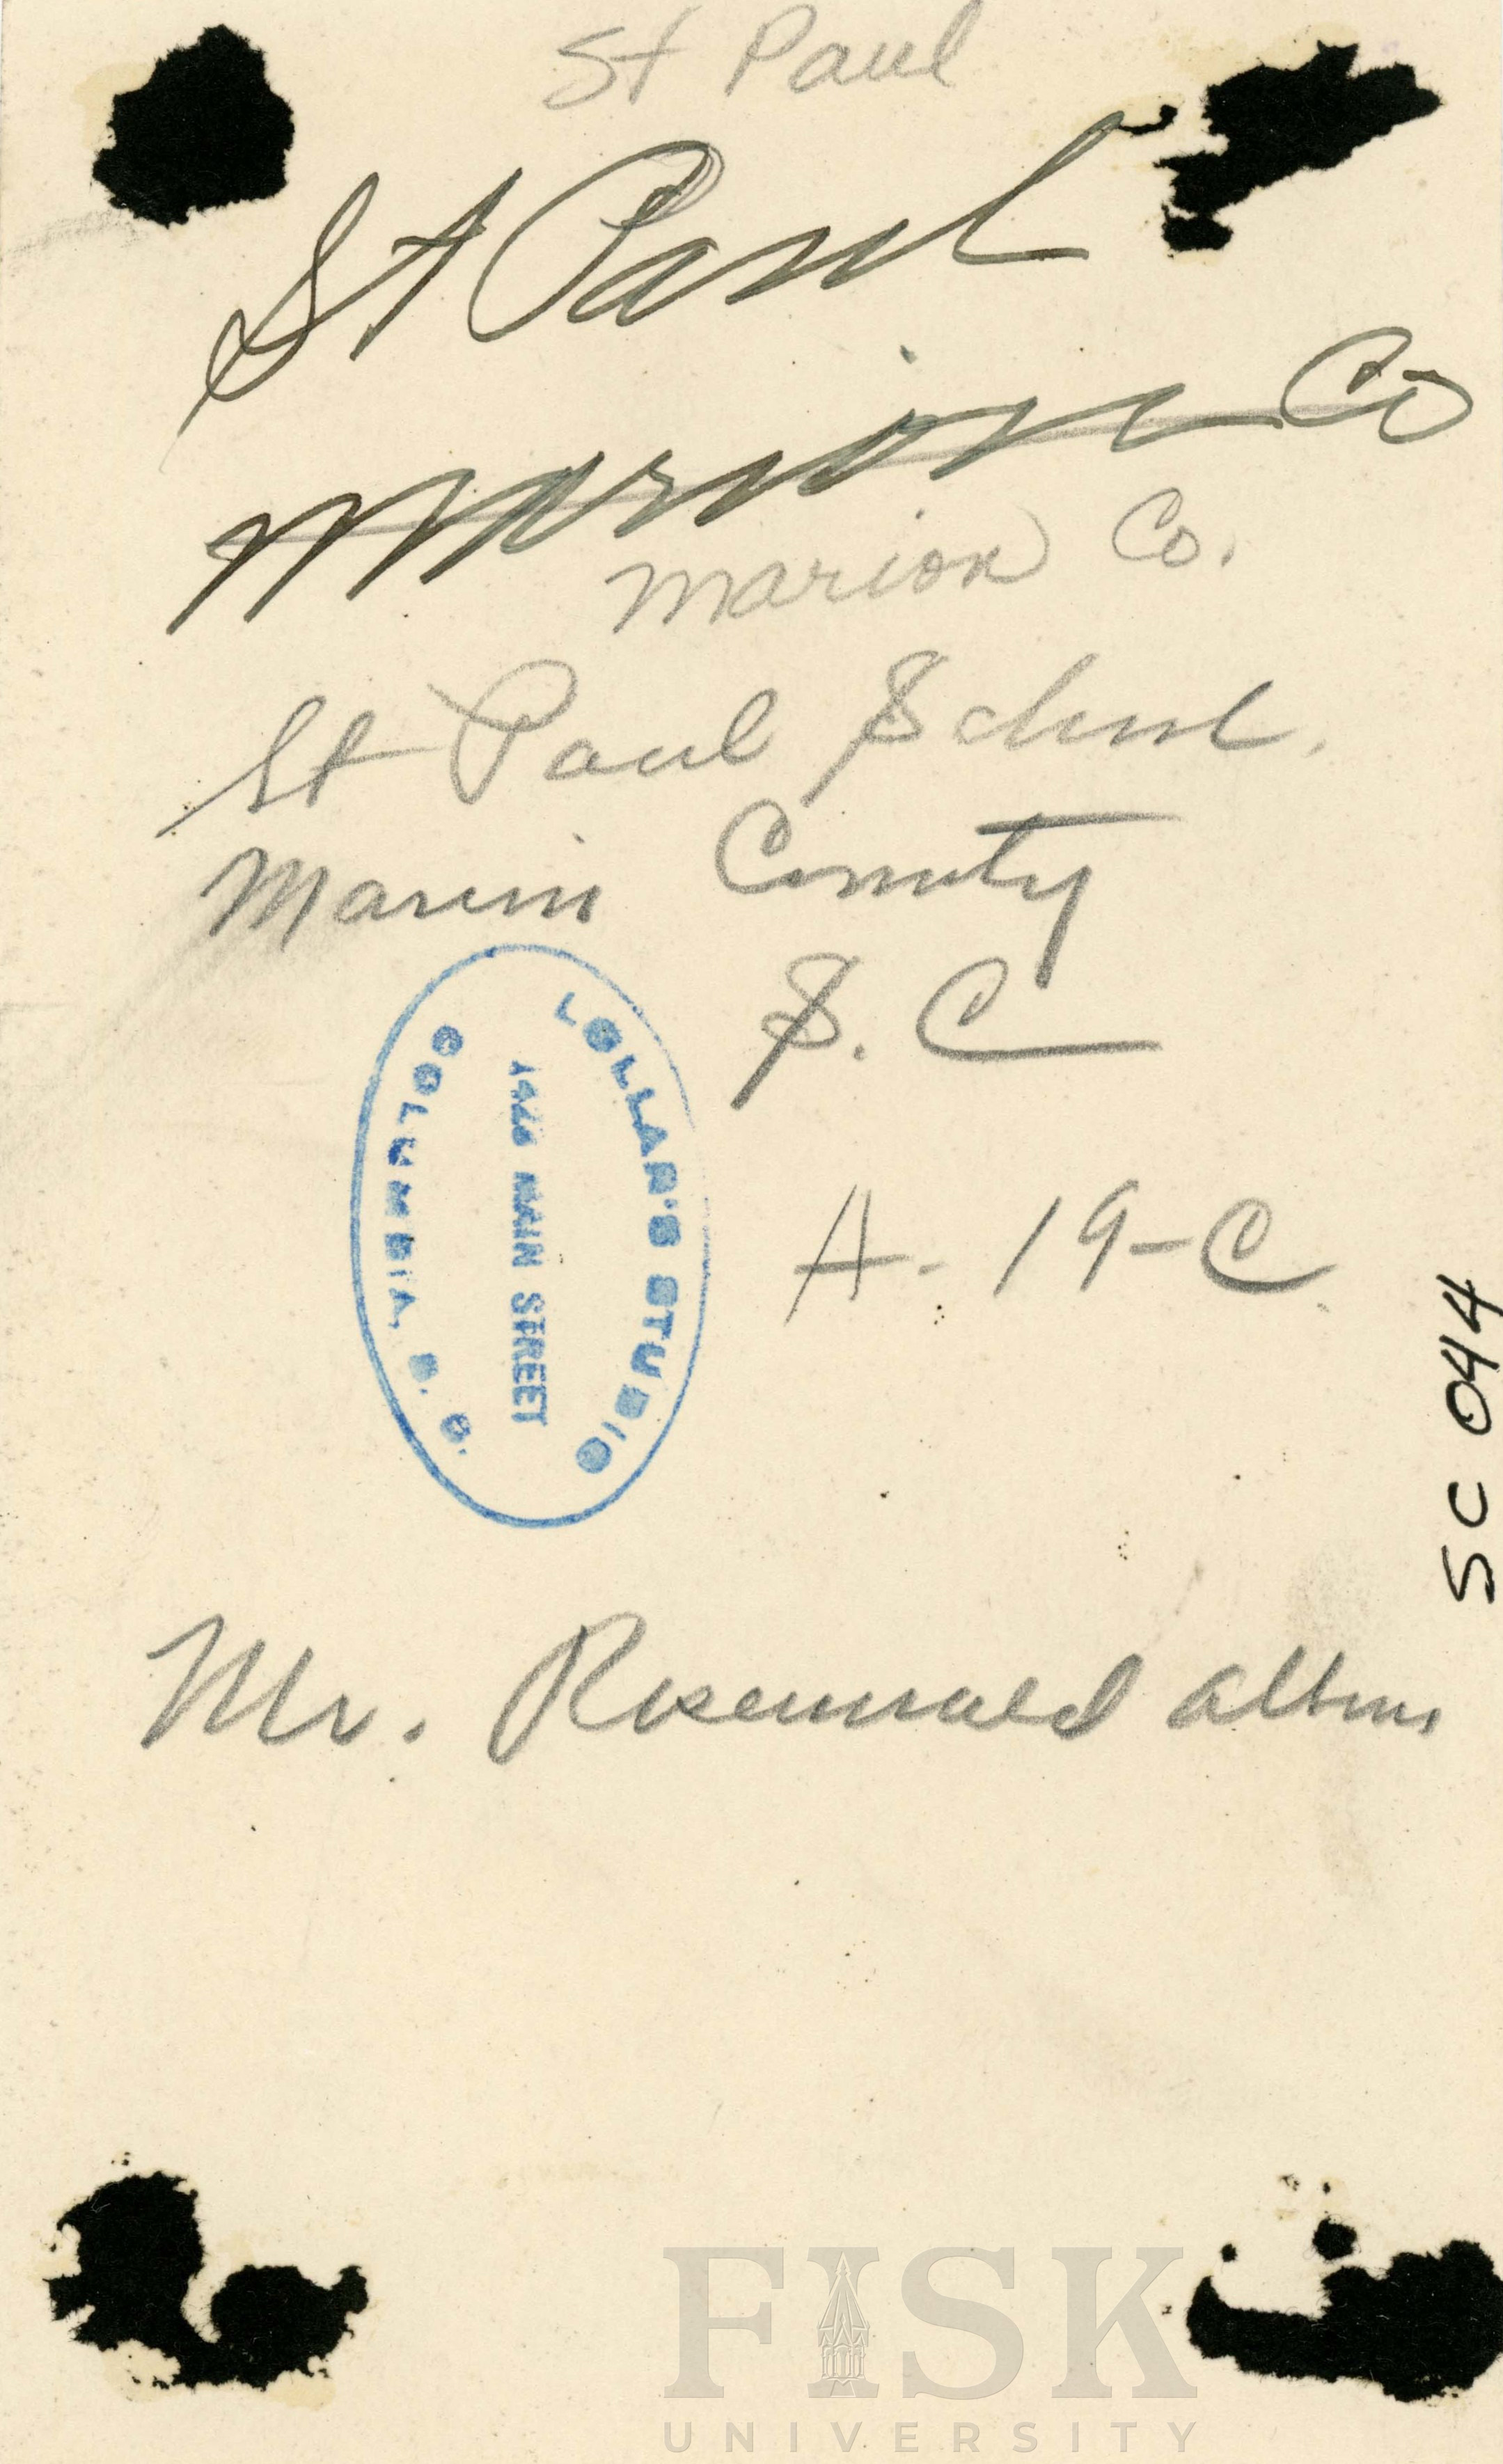 St Paul
St Paul
Marion Co
Marion Co.
St Paul School.
Marion County
S. C
LOLLAR'S STUDIO
1423 MAIN STREET
COLUMBIA, S. C.
A-19-C
SC 044
Mr. Rosenwald album
FISK
UNIVERSITY